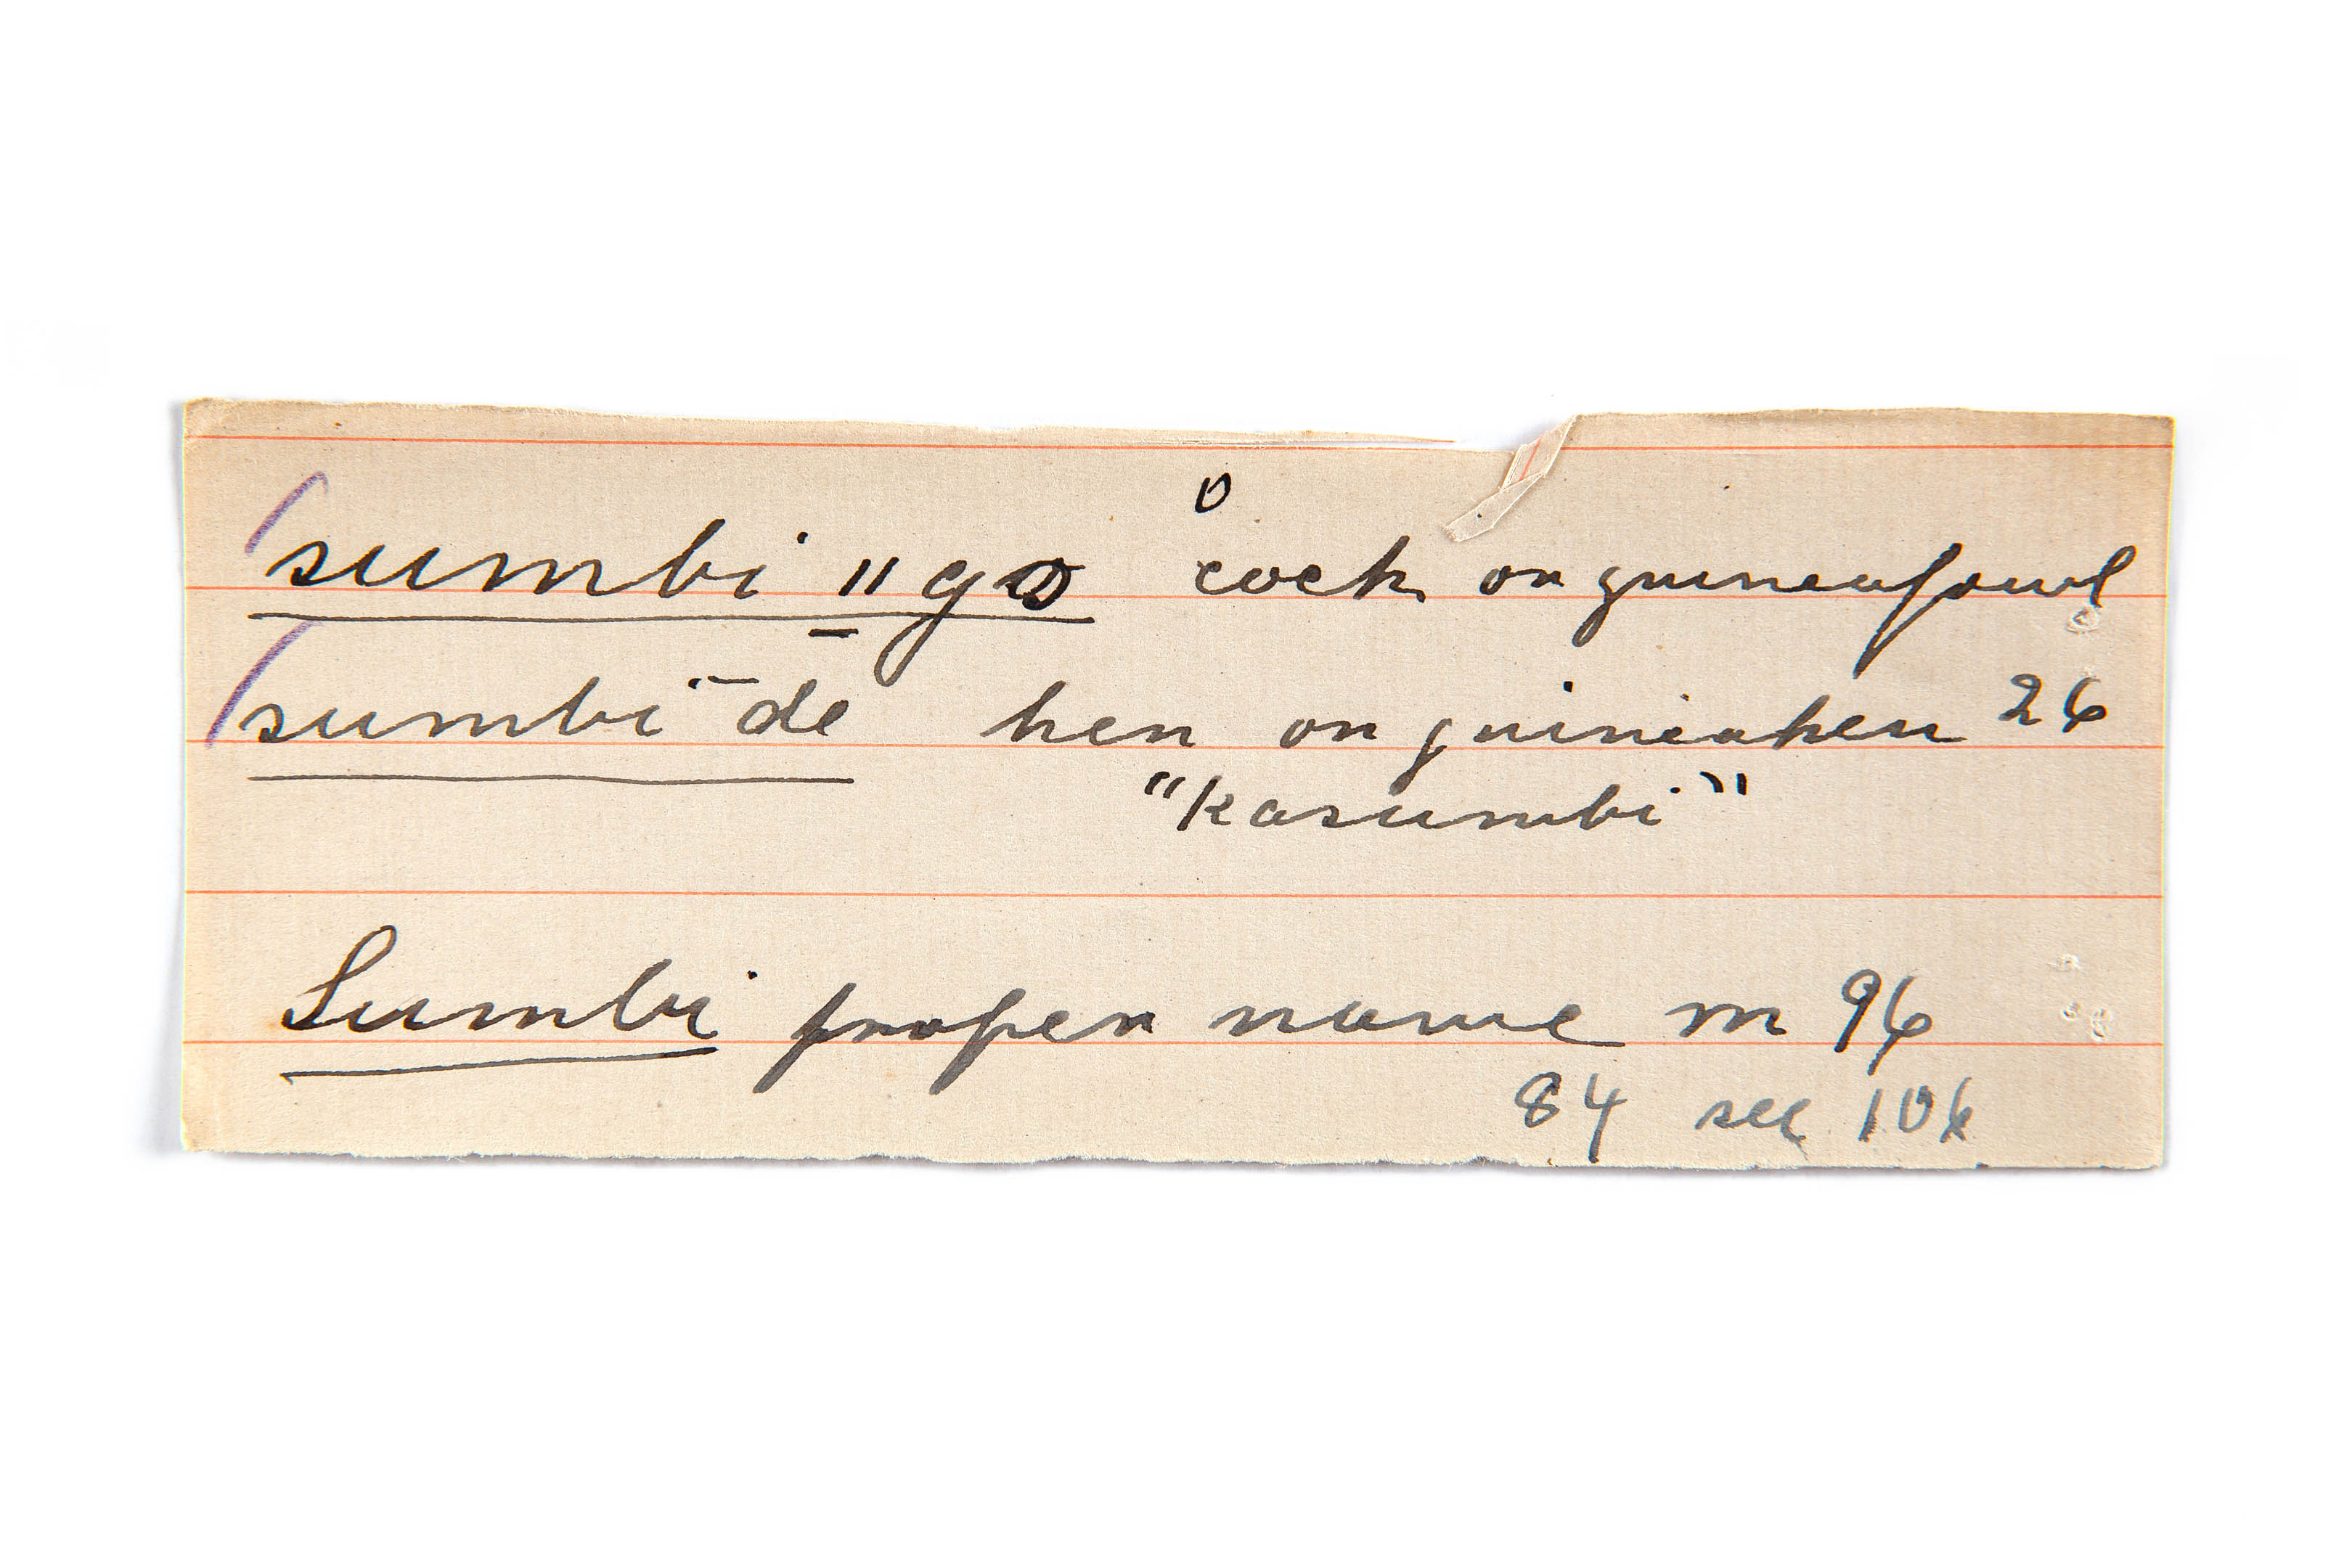 o
sumbi "go cock or guineafowl
sumbi-de hen or guineahen 26
"kasumbi"
Sumbi proper name m 96
84 see 106